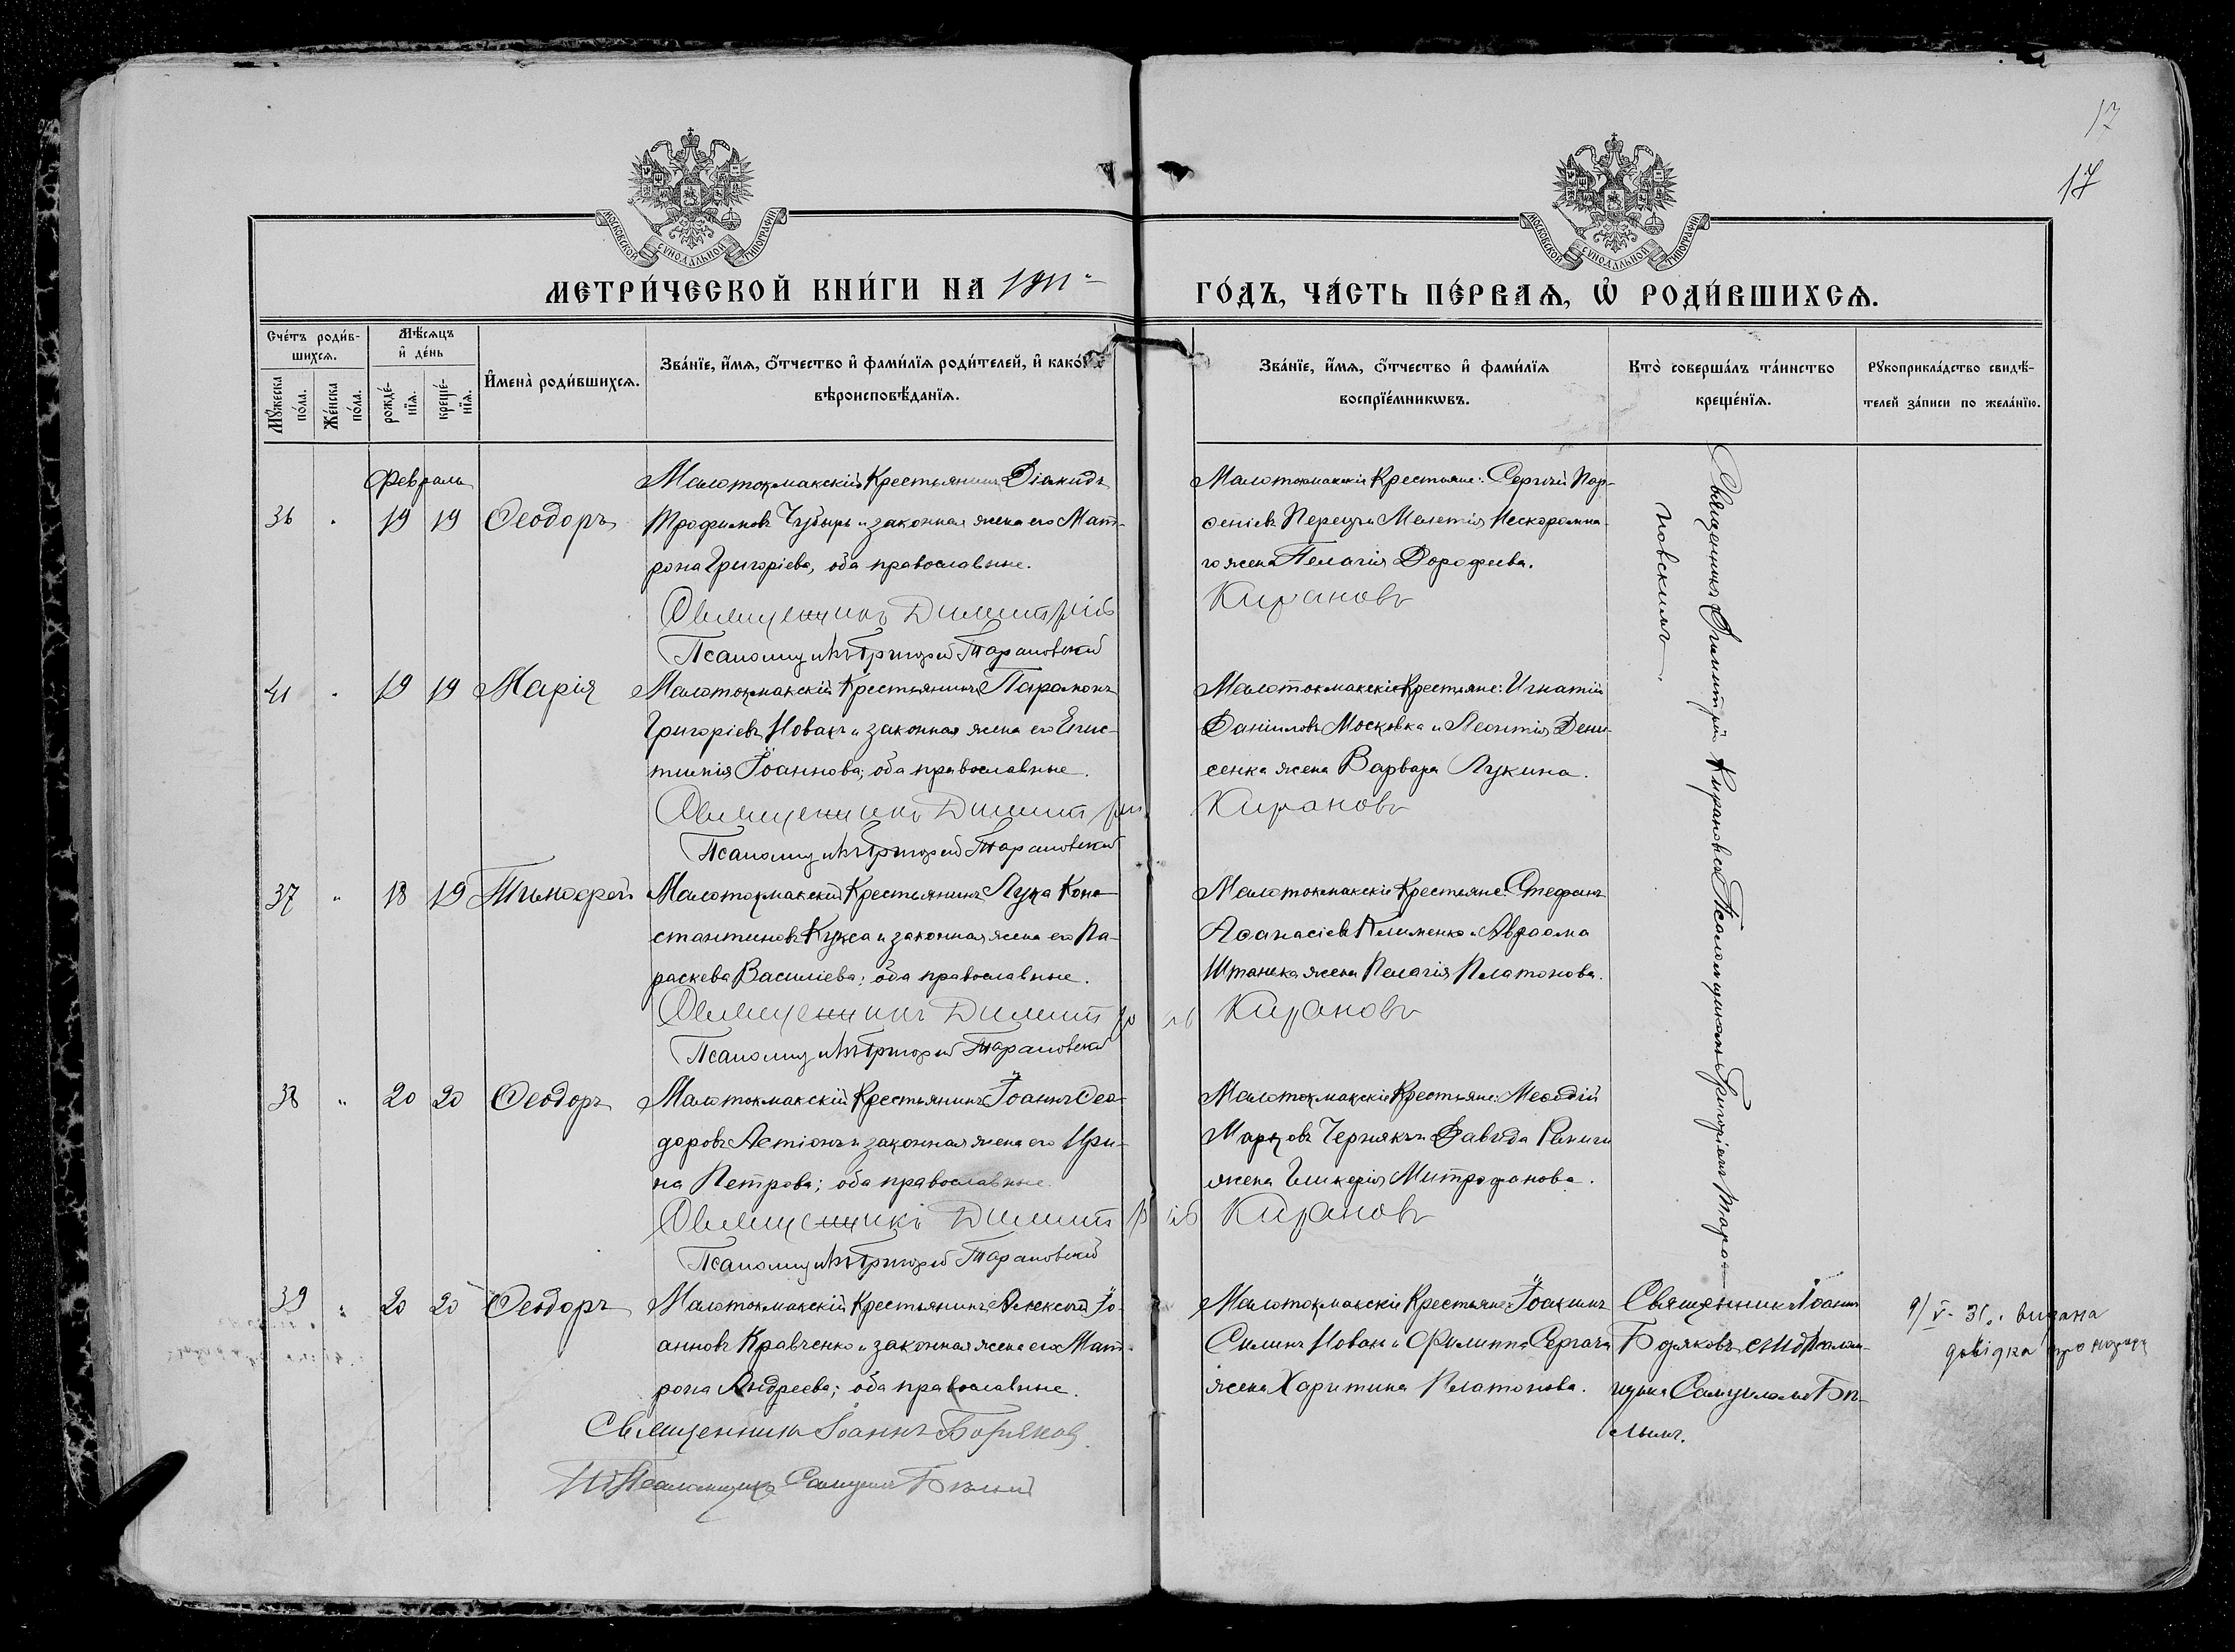 17
17
МОСКОВСКОЙ СѴНОДАЛЬНОЙ ТИПОГРАФІИ
МОСКОВСКОЙ СѴНОДАЛЬНОЙ ТИПОГРАФІИ
МЕТРИ́ЧЕСКОЙ КНИ́ГИ НА 1911 ГО́ДЪ, ЧА́СТЬ ПЕ́РВАѦ, Ѽ РОДИ́ВШИХСѦ.
Сче́тъ роди́в-
шихсѧ.
Мꙋ́жеска
по́ла.
Же́нска
по́ла.
Мѣ́сѧцъ
и҆ де́нь
рожде́-
нїѧ.
креще́-
нїѧ.
И҆мена̀ роди́вшихсѧ.
Зва́нїе, и҆́мѧ, ѻ҆́тчество и҆ фами́лїѧ роди́телей, и҆ како́гѡ
вѣроисповѣ́данїѧ.
Зва́нїе, и҆́мѧ, ѻ҆́тчество и҆ фами́лїѧ
воспрїе́мникѡвъ.
Кто̀ соверша́лъ та́инство
креще́нїѧ.
Рꙋкоприкла́дство свидѣ́-
телей за́писи по жела́нїю.
Февраль
36 " 19 19 Ѳеодоръ
Малотокмакскій Крестьянинъ Діомидъ
Трофимовъ Чубырь и законная жена его Мат-
рона Григоріева, оба православные.
Священникъ Димитрій Кирановъ
Псаломщикъ Григорій Тарановскій
Малотокмакскіе Крестьяне: Сергій Пар-
ѳеніевъ Перецъ и Мелетія Нескоромна-
го жена Пелагія Дороѳеева.
Священникъ Димитрій Кирановъ съ Псаломщикомъ Григоріемъ Тара-
новскимъ.
41 " 19 19 Марія
Малотокмакскій Крестьянинъ Парамонъ
Григоріевъ Новакъ и законная жена его Епис-
тимія Іоаннова; оба православные.
Священникъ Димитрій Кирановъ
Псаломщикъ Григорій Тарановскій
Малотокмакскіе Крестьяне: Игнатій
Даніиловъ Московка и Леонтія Дени-
сенка жена Варвара Лукина.
37 " 18 19 Тимоѳей
Малотокмакскій Крестьянинъ Лука Кон-
стантиновъ Кукса и законная жена его Па-
раскева Василіева; оба православные.
Священникъ Димитрій Кирановъ
Псаломщикъ Григорій Тарановскій
Малотокмакскіе Крестьяне: Стефанъ
Аѳанасіевъ Клименко и Авраама
Штанька жена Пелагія Платонова.
38 " 20 20 Ѳеодоръ
Малотокмакскій Крестьянинъ Іоаннъ Ѳео-
доровъ Астіонъ и законная жена его Ири-
на Петрова; оба православные.
Священникъ Димитрій Кирановъ
Псаломщикъ Григорій Тарановскій
Малотокмакскіе Крестьяне: Меѳодій
Марковъ Чернякъ и Давида
жена Гликерія Митрофанова.
39 " 20 20 Ѳеодоръ
Малотокмакскій Крестьянинъ Алексѣй Іо-
анновъ Кравченко и законная жена его Мат-
рона Андреева; оба православные.
Священникъ Іоаннъ Боряковъ
Псаломщикъ Самуилъ Бѣлый
Малотокмакскіе Крестьяне: Іоакимъ
Силинъ Новакъ и Филиппа Сергача
жена Харитина Платонова.
Священникъ Іоаннъ
Боряковъ съ Псалом-
щикомъ Самуиломъ Бѣ-
лымъ.
9/V-31. видана
довідка про